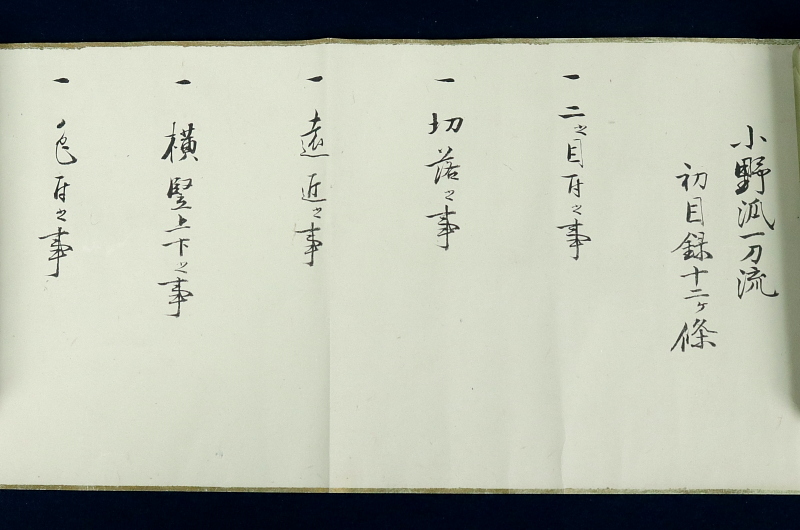 小野派一刀流
初目録十二ヶ條
一 二之目付之事
一 切落之事
一 遠近之事
一 横竪上下之事
一 色付之事